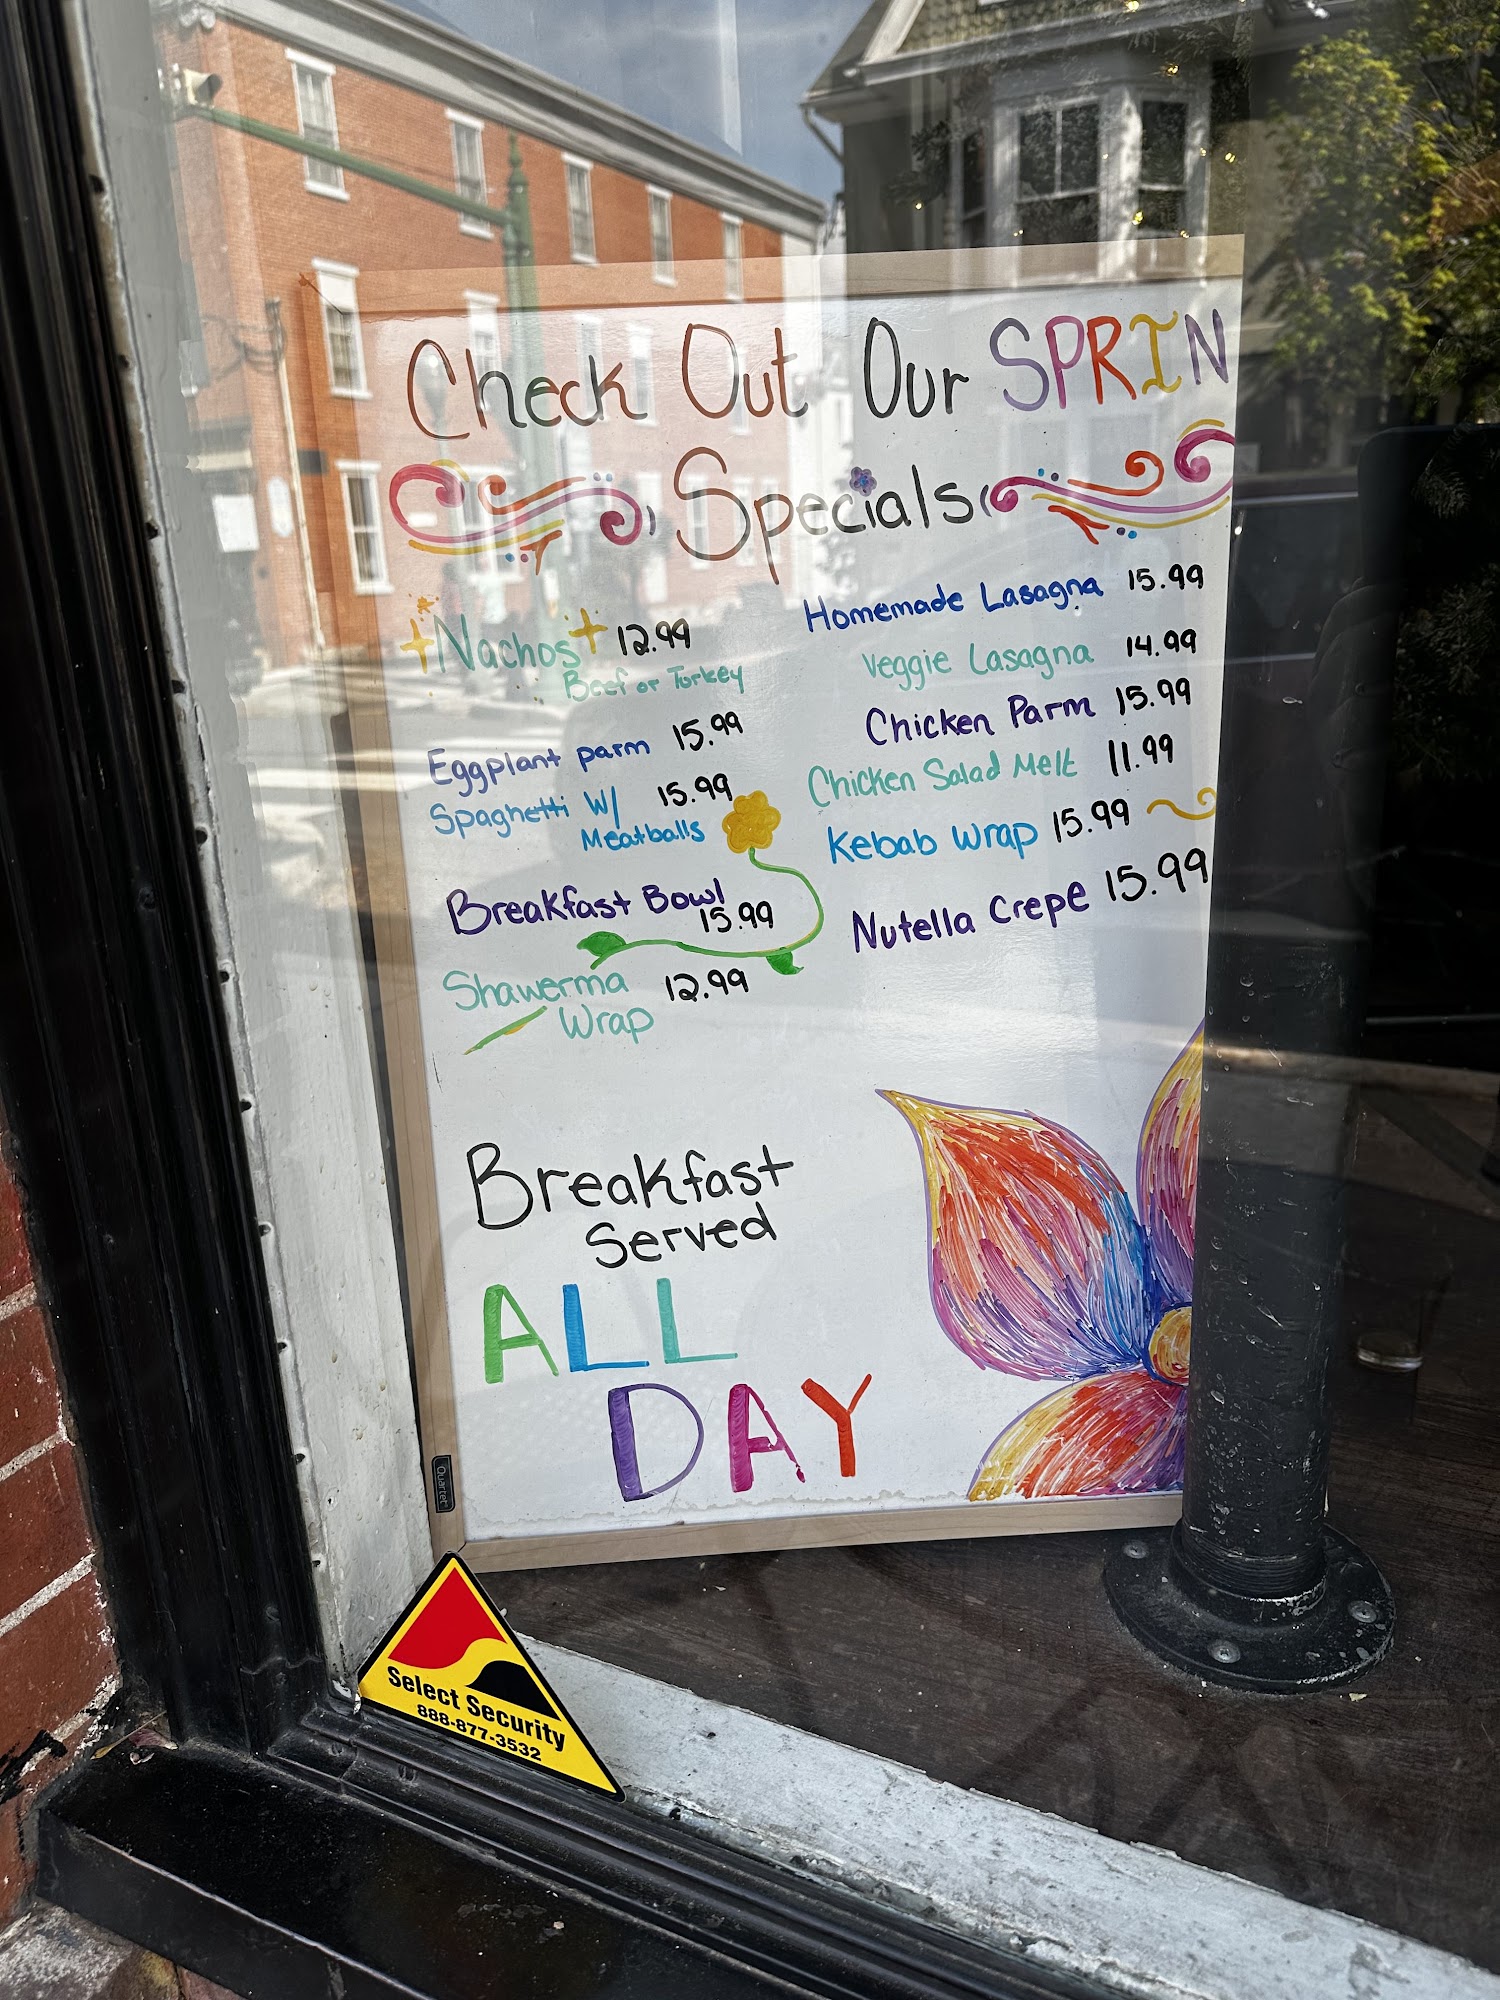 Check Out Our SPRIN
Specials
Nachos 12.99
Beef or Turkey
Eggplant parm 15.99
Spaghetti W/ 15.99
Meatballs
Breakfast Bowl
15.99
Shawerma 12.99
Wrap
Homemade Lasagna 15.99
Veggie Lasagna 14.99
Chicken Parm 15.99
Chicken Salad Melt 11.99
Kebab Wrap 15.99
Nutella Crepe 15.99
Breakfast
Served
ALL
DAY
Quartet
Select Security
888-877-3532